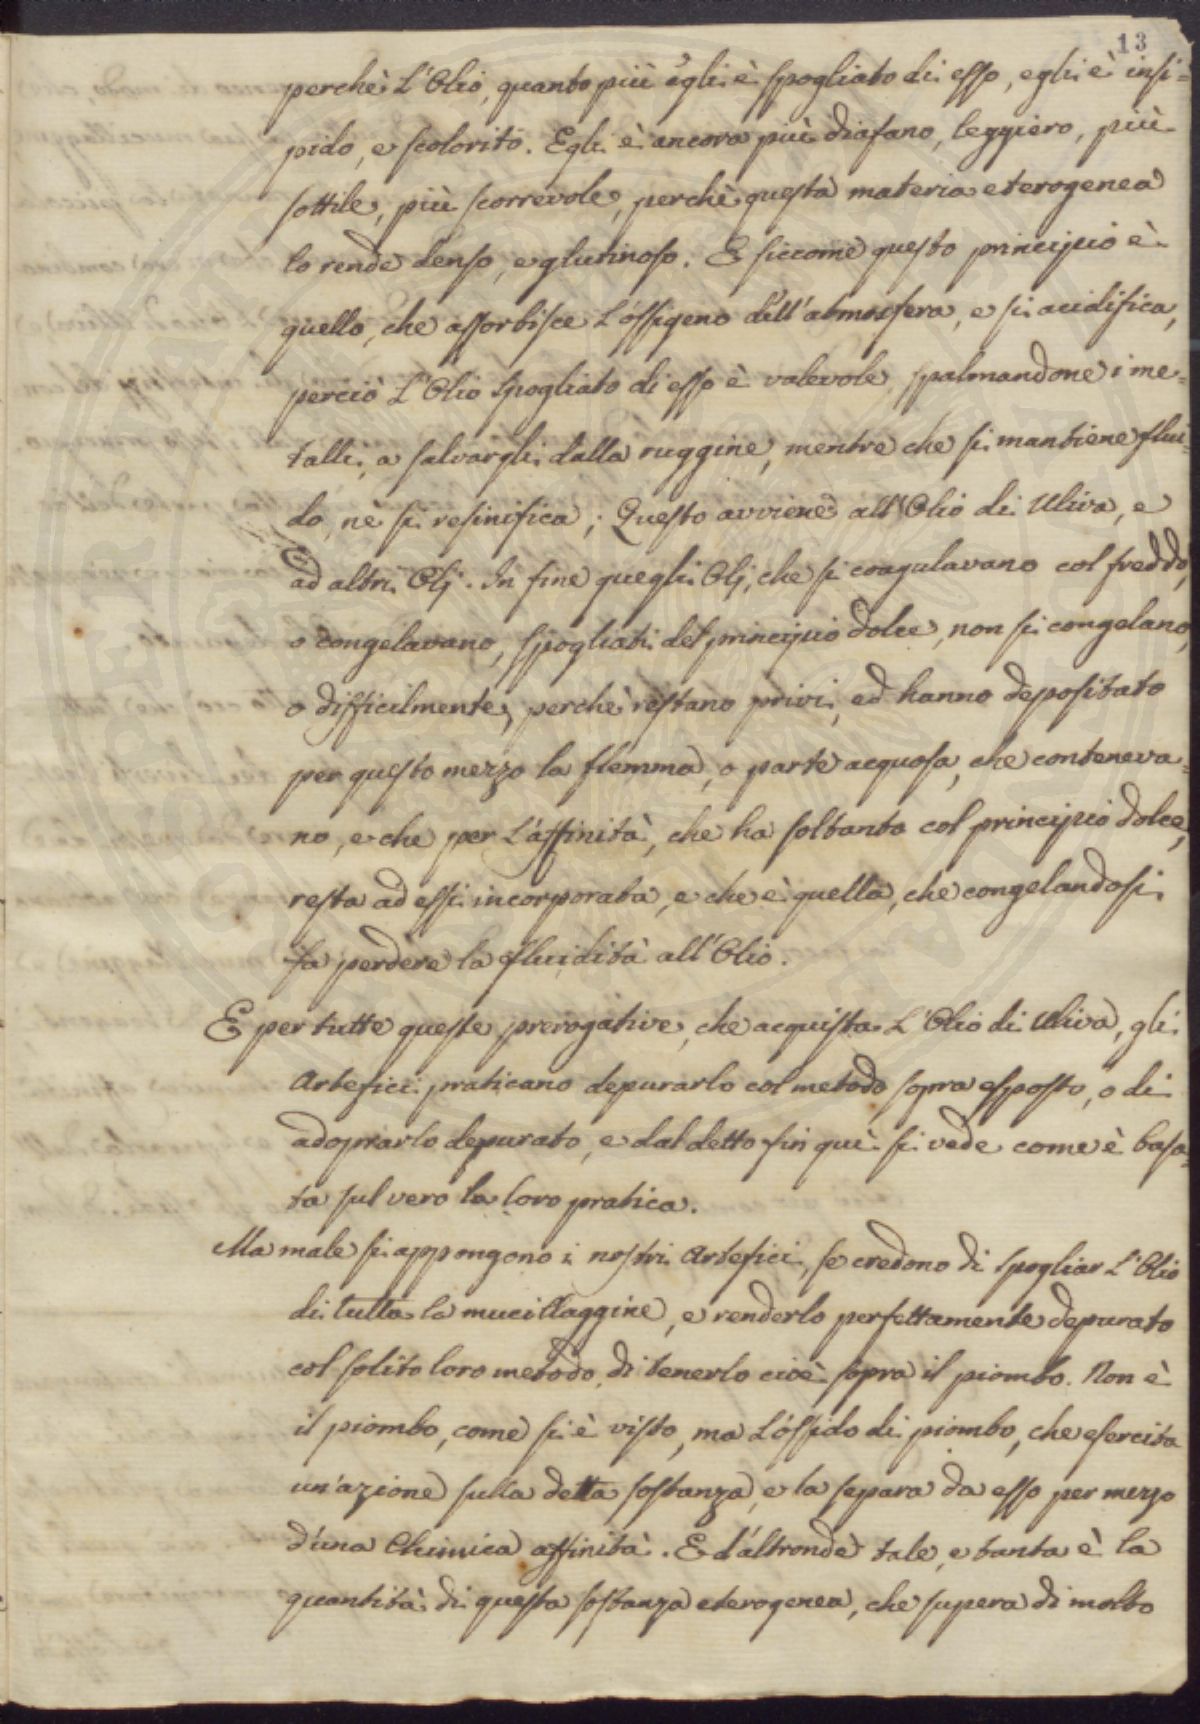 13
perchè L'Olio, quanto più egli è spogliato di esso, egli è insi-
pido, e scolorito. Egli è ancora più diafano, leggiero, più
sottile, più scorrevole, perchè questa materia eterogenea
lo rende denso, e glutinoso. E siccome questo principio è
quello, che assorbisce L'ossigeno dell'atmosfera, e si acidifica,
perciò L'Olio spogliato di esso è valevole, spalmandone i me-
talli, a salvargli dalla ruggine, mentre che si mantiene flui-
do, nè si resinifica; Questo avviene all'Olio di Uliva, e
ad altri Olj. In fine quegli Olj, che si coagulavano col freddo,
o congelavano, spogliati del principio dolce, non si congelano,
o difficilmente, perchè restano privi, ed hanno depositato
per questo mezzo la flemma, o parte acquosa, che conteneva-
no, e che per L'affinità, che ha soltanto col principio dolce,
resta ad essi incorporata, e che è quella, che congelandosi
fa perdere la fluidità all'Olio.
E per tutte queste prerogative, che acquista L'Olio di Uliva, gli
Artefici praticano depurarlo col metodo sopra esposto, o di
adoprarlo depurato, e dal detto fin quì si vede come è basa-
ta sul vero la loro pratica.
Ma male si appongono i nostri Artefici, se credono di spogliar L'Olio
di tutta la mucillaggine, e renderlo perfettamente depurato
col solito loro metodo, di tenerlo cioè sopra il piombo. Non è
il piombo, come si è visto, ma L'ossido di piombo, che esercita
un'azione sulla detta sostanza, e la separa da esso per mezzo
d'una Chimica affinità. E d'altronde tale, e tanta è la
quantità di questa sostanza eterogenea, che supera di molto